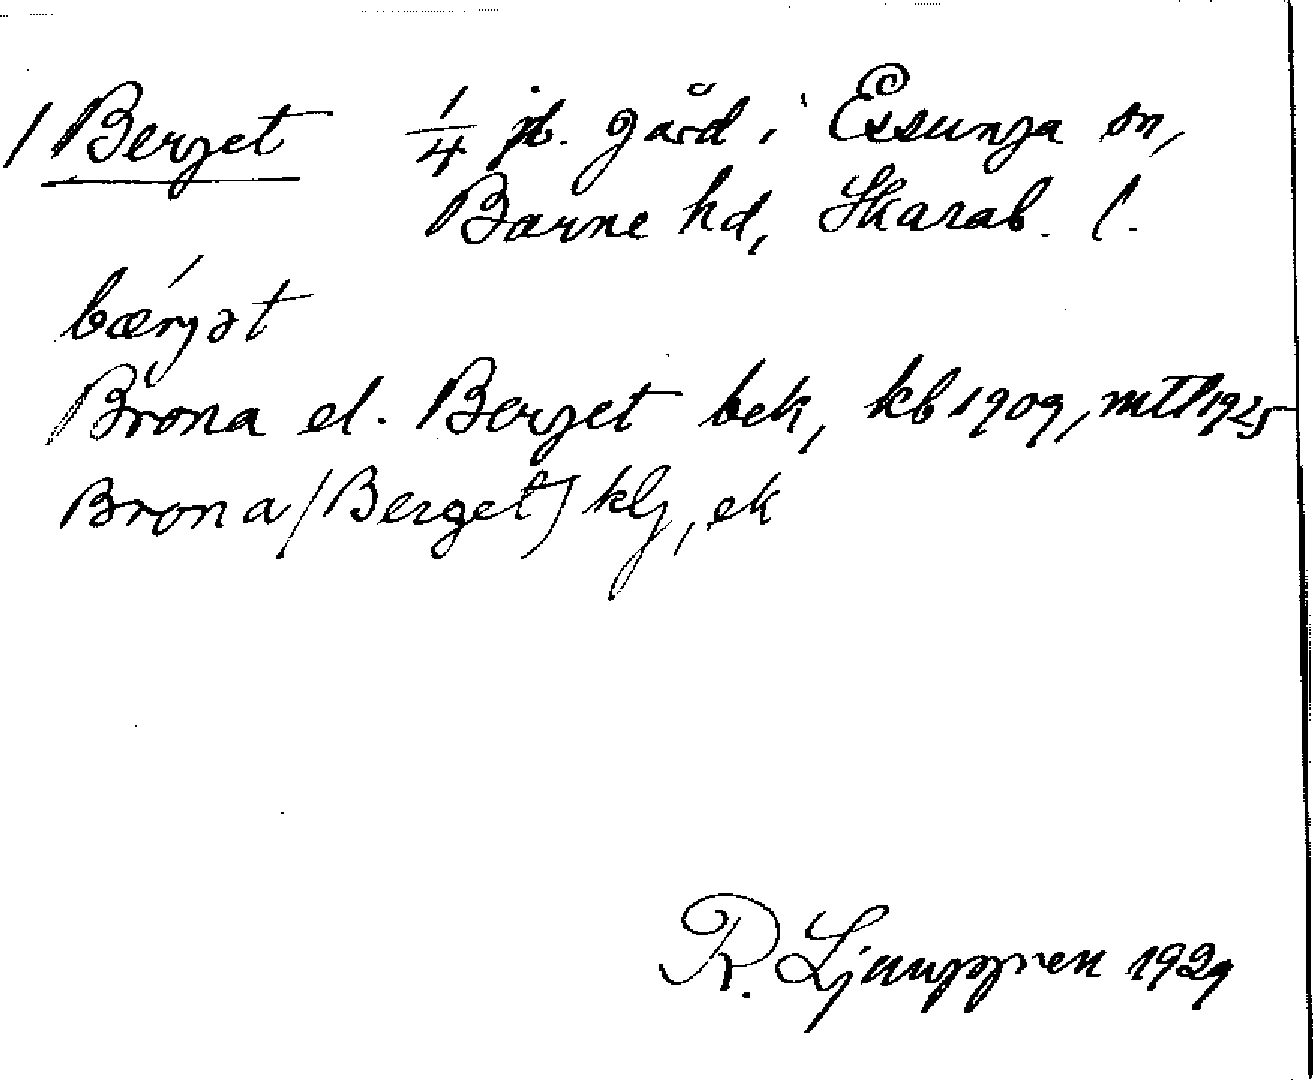 1 Berget 1/4 jb. gård i Essunga sn,
Barne hd, Skarab. l.
bærjət
Brona el. Berget bek, kb 1909, mtl 1925
Brona (Berget) klj, ek
R. Ljunggren 1929